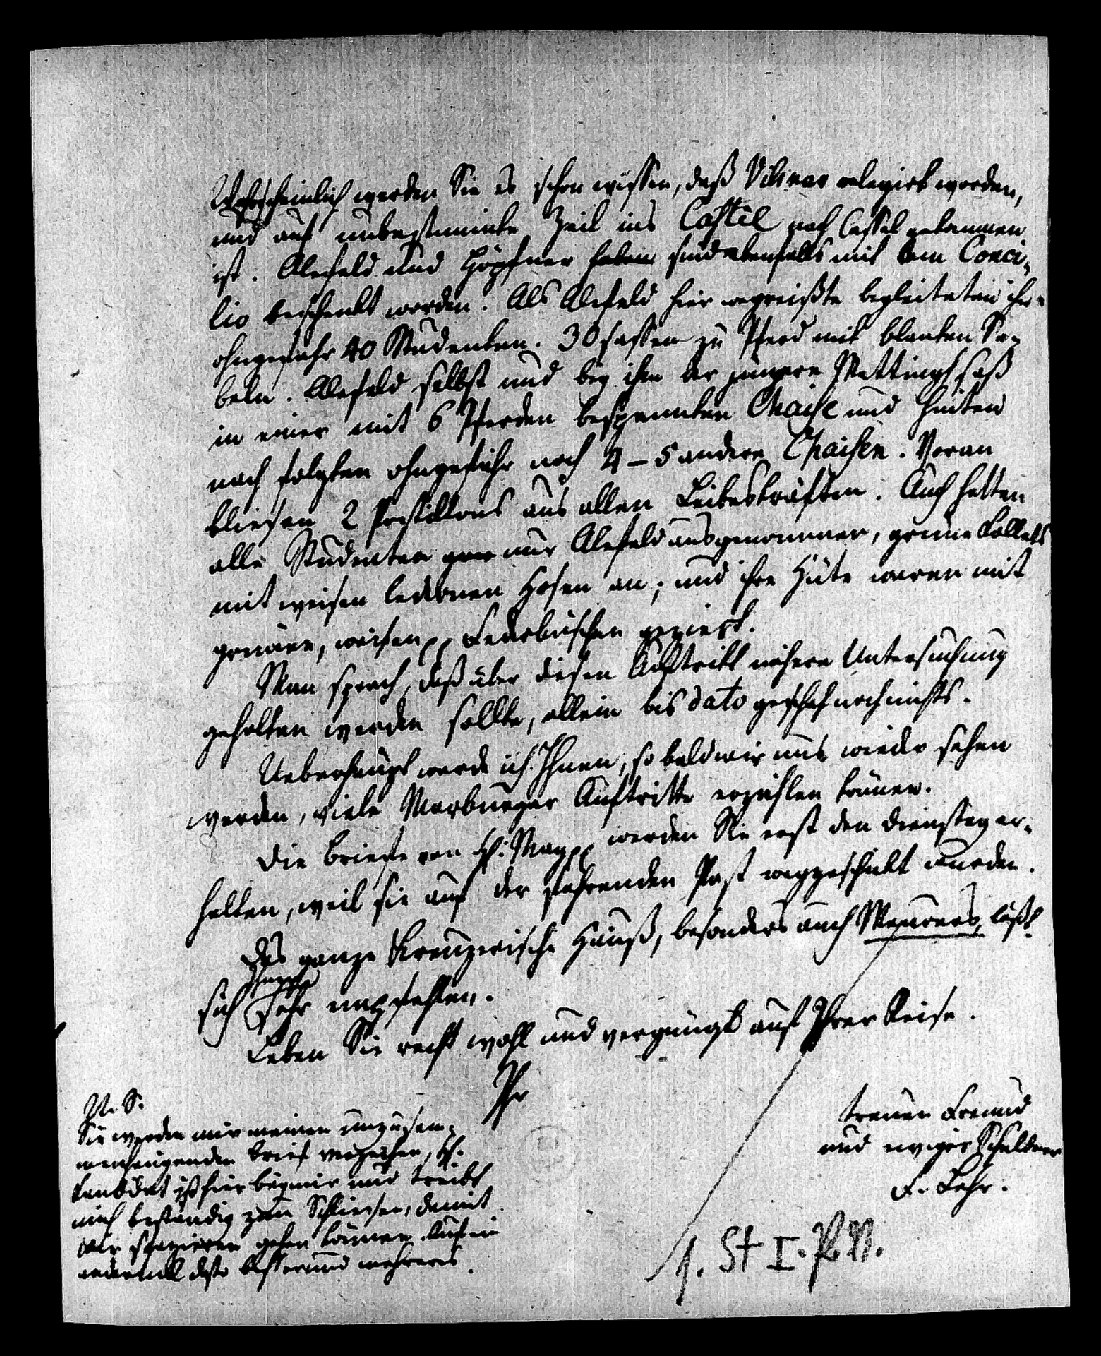 Wahrscheinlich werden Sie es schon wissen, daß Vilmar relegirt worden,
und auf unbestimmte Zeit ins Castel nach Cassel gekommen
ist. Alefeld und Höpfner haben sind ebenfalls mit dem Conci-
lio beschenkt worden. Als Alefeld hier wegreißte begleiteten ihn
ohngefähr 40 Studenten. 30 sassen zu Pferd mit blanken Sä-
beln. Alefeld selbst und bey ihm der jüngere Mettingh saß
in einer mit 6 Pferden bespannten Chaise und hinten
nach folgten ohngefähr noch 4–5 andere Chaisen. Voran
bliesen 2 Postillons aus allen Leibeskräften. Auch hatten
alle Studenten nur Alefeld ausgenommen, grüne Collets
mit weisen ledernen Hosen an; und ihre Hüte waren mit
grünen, weisen pp Federbüschen geziert.
Man sprach, daß über diesen Auftritt nähere Untersuchung
gehalten werden sollte, allein bis dato geschah noch nichts.
Ueberhaupt werde ich Ihnen, so bald wir uns wieder sehen
werden, viele Marburger Auftritte erzählen können.
Die Briefe von H. May pp werden Sie erst den Dienstag er-
halten, weil sie auf der fahrenden Post weggeschickt wurden.
Das ganze Kreuzerische Hauß, besonders auch Meurers, läßt
sich sehr empfehlen.
Leben Sie recht wohl und vergnügt auf Ihrer Reise.
Ihr
treuer Freund
und ewiger Schuldner
F. Lehr.
N. S.
Sie werden mir meinen unzusam-
menhängenden Brief verzeihen, H.
Candidat ist hier bey mir und treibt
mich beständig zum Schliessen, damit
wir spazieren gehen können. Auf ein
andermal desto besser und mehreres.
1. St I.